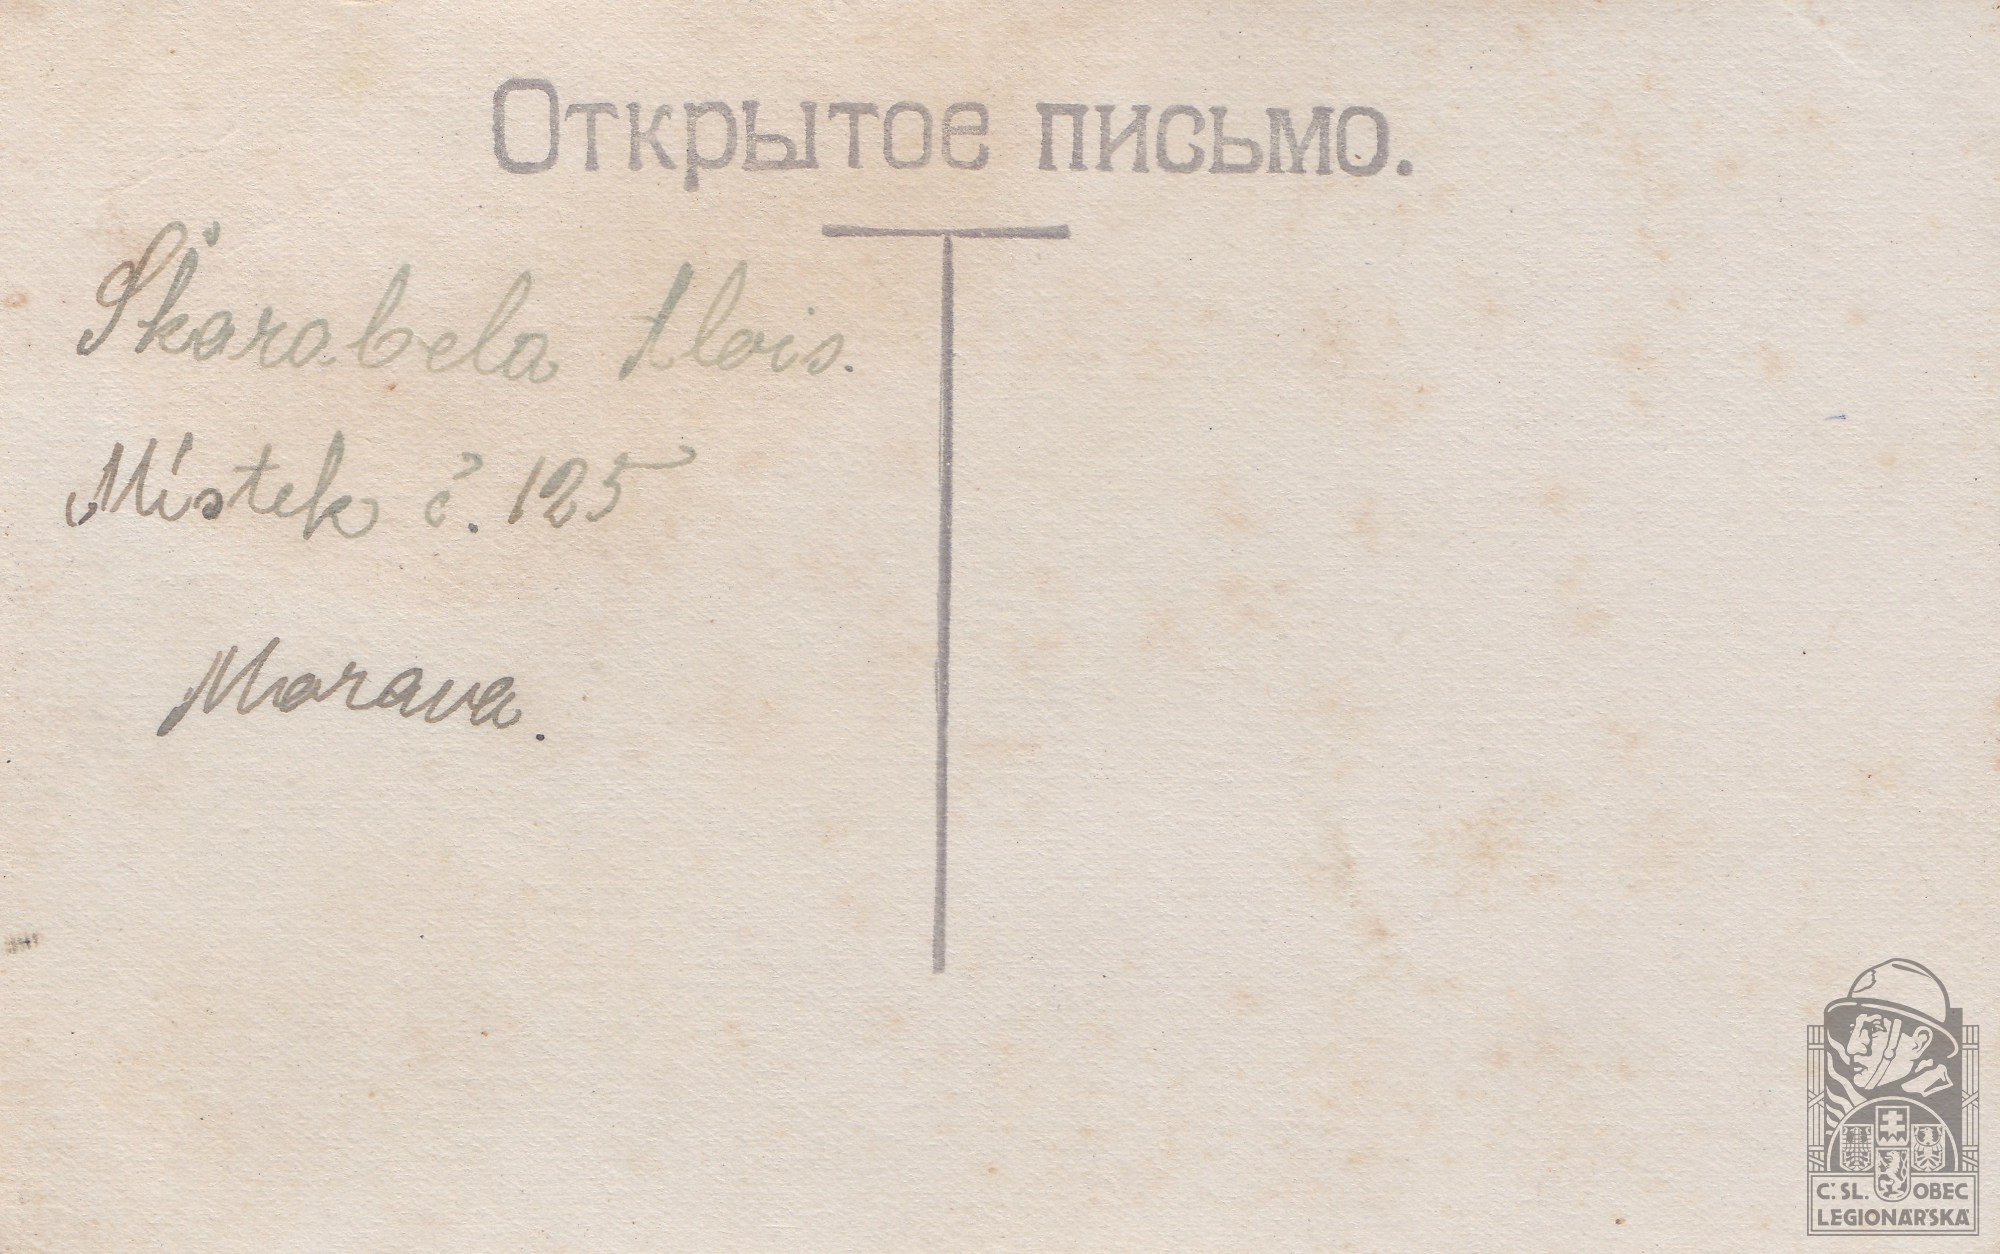 Открытое письмо.
Škarabela Alois.
Místek č. 125
Morava.
Č.SL. OBEC
LEGIONÁŘSKÁ